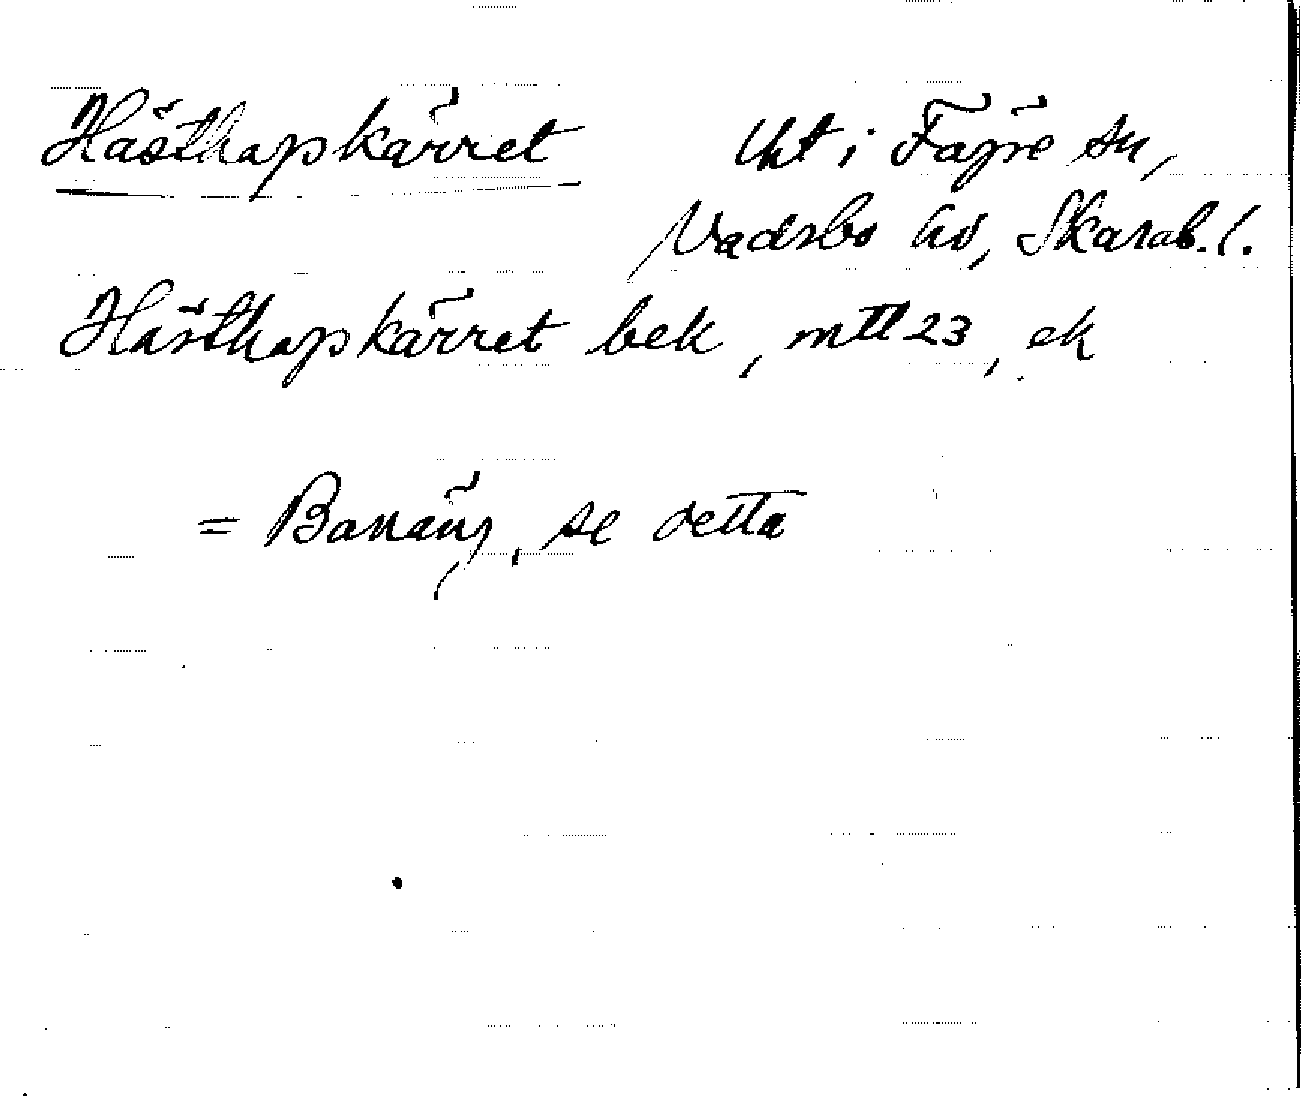 Hästhapskärret Uht i Fägre sn,
Vadsbo hd, Skarab. l.
Hästhapskärret bek, mtl 23, ek
= Banäng, se detta